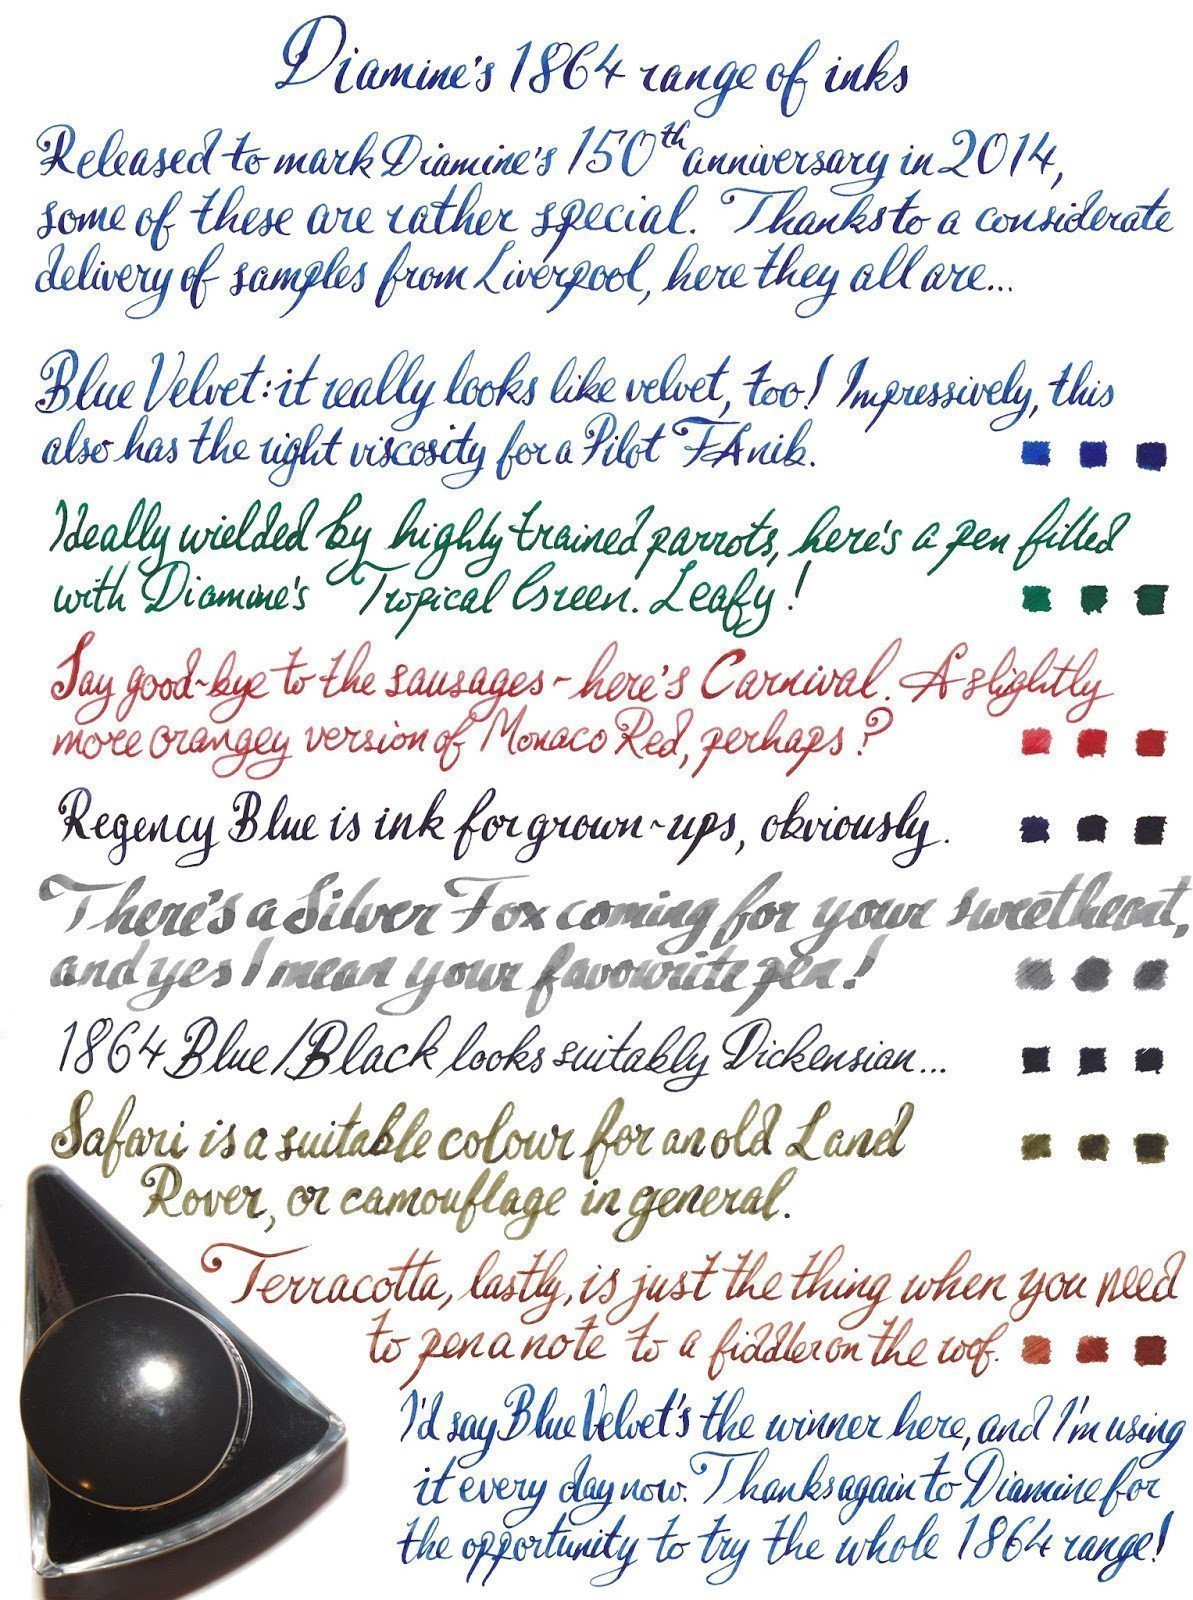 Diamine's 1864 range of inks
Released to mark Diamine's 150th anniversary in 2014,
some of these are rather special. Thanks to a considerate
delivery of samples from Liverpool, here they all are...
Blue Velvet: it really looks like velvet, too! Impressively, this
also has the right viscosity for a Pilot FA nib.
Ideally wielded by highly trained parrots, here's a pen filled
with Diamine's Tropical Green. Leafy!
Say good-bye to the sausages - here's Carnival. A slightly
more orangey version of Monaco Red, perhaps?
Regency Blue is ink for grown-ups, obviously.
There's a Silver Fox coming for your sweetheart,
and yes I mean your favourite pen!
1864 Blue/Black looks suitably Dickensian...
Safari is a suitable colour for an old Land
Rover, or camouflage in general.
Terracotta, lastly, is just the thing when you need
to pen a note to a fiddler on the roof.
I'd say Blue Velvet's the winner here, and I'm using
it every day now. Thanks again to Diamine for
the opportunity to try the whole 1864 range!